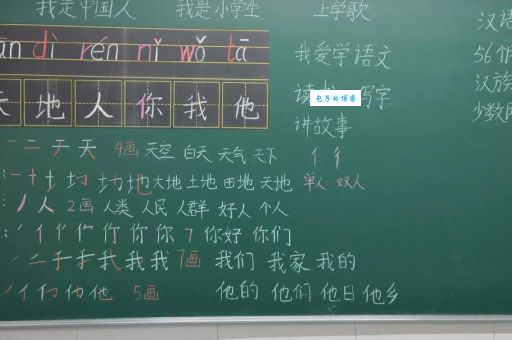 我是中国人 我是小学生 上学歌 汉语
ān dì rén nǐ wǒ tā
天 地 人 你 我 他
我爱学语文
56个
读书 写字
包子的博客
汉族
讲故事
少数民
一 二 于 天 4画 天空 白天 天气 天下 亻 彳
一 十 土 圠 圸 地 大地 土地 田地 天地 单人 双人
丿 人 2画 人类 人民 人群 好人 个人
你 你 7 你好 你们
二 于 手 我 我 我 7画 我们 我家 我的
丿 亻 他 他 5画 他的 他们 他日 他乡